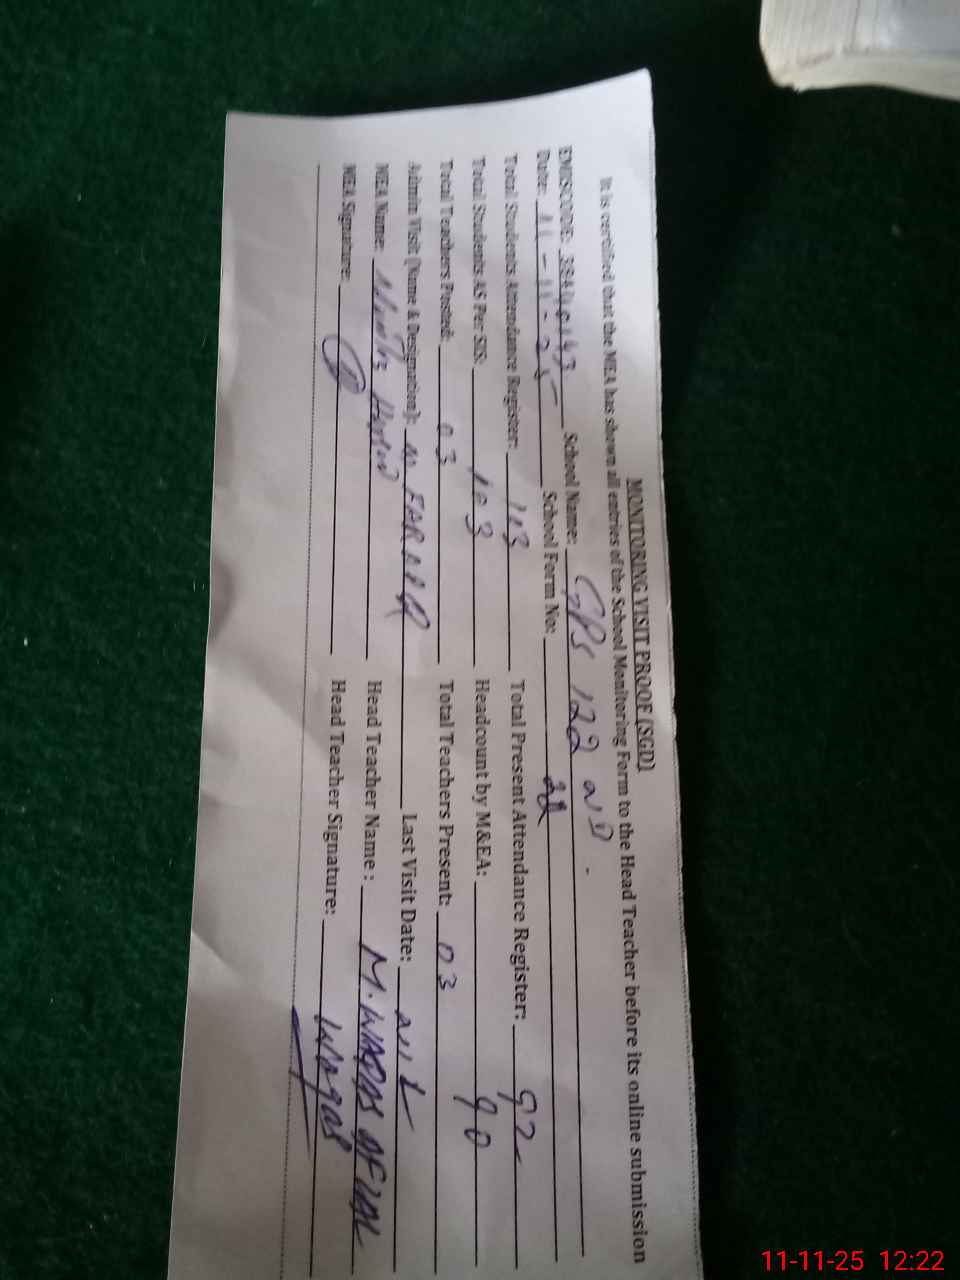 MONITORING VISIT PROOF (SGD)
It is certified that the MEA has shown all entries of the School Monitoring Form to the Head Teacher before its online submission
EMISCODE: School Name: GPS 122 ND
Date: 11-11-25 School Form No:
Total Students Attendance Register: 103 Total Present Attendance Register: 92
Total Students AS Per SIS: 103 Headcount by M&EA: 90
Total Teachers Posted: 03 Total Teachers Present: 03
Admin Visit (Name & Designation): Last Visit Date:
MEA Name: Head Teacher Name : M. WAQAS
MEA Signature: Head Teacher Signature: Waqas
11-11-25 12:22